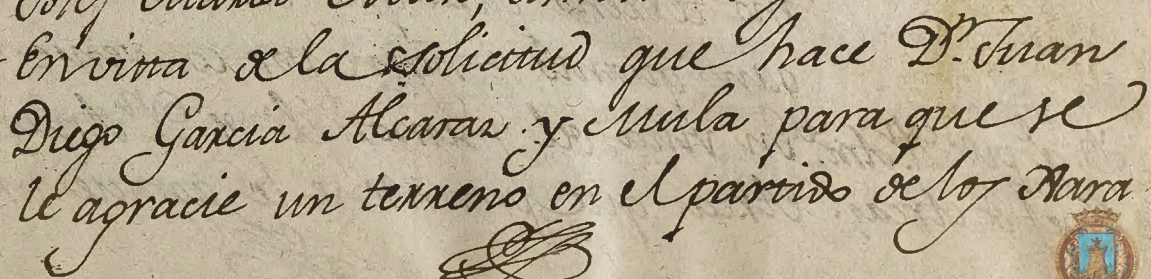 En vista de la solicitud que hace Dn. Juan
Diego Garcia Alcaraz y Mula para que se
le agracie un terreno en el partido de los Nara